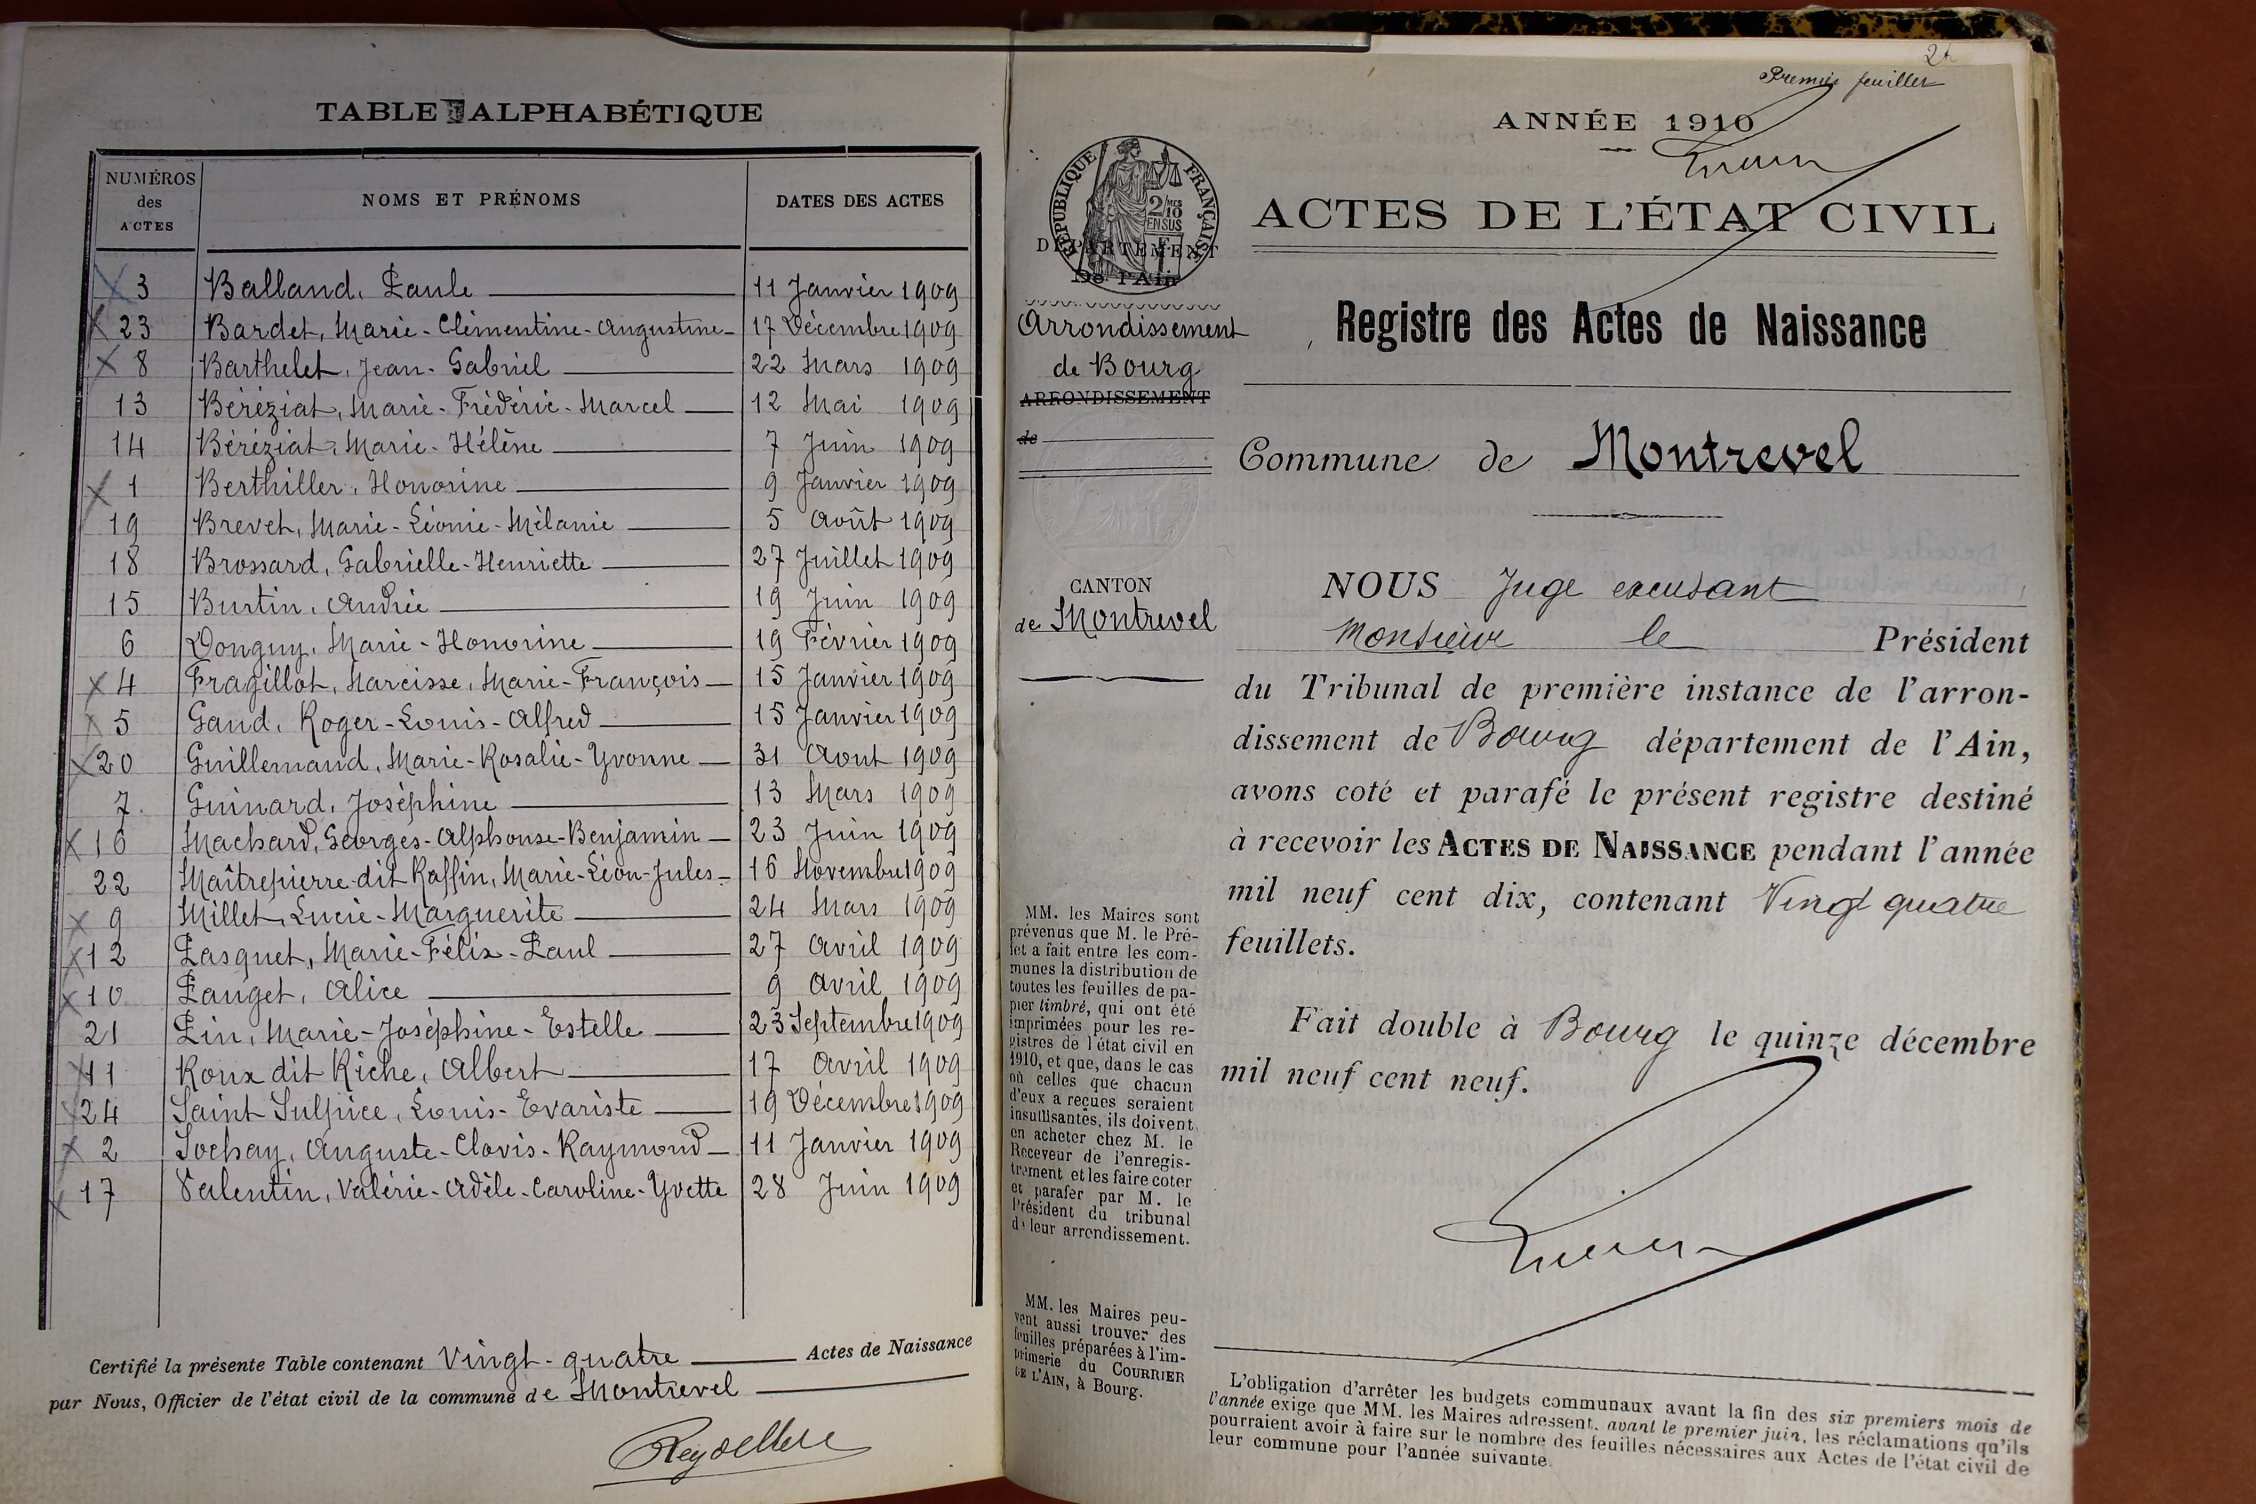 TABLE ALPHABÉTIQUE
NUMÉROS des ACTES NOMS ET PRÉNOMS DATES DES ACTES
3 Balland, Paule 11 Janvier 1909
23 Bardet, Marie-Clémentine-Augustine 17 Décembre 1909
8 Barthelet, Jean-Gabriel 22 Mars 1909
13 Béréziat, Marie-Frédéric-Marcel 12 Mai 1909
14 Béréziat, Marie-Hélène 7 Juin 1909
1 Berthiller, Honorine 9 Janvier 1909
19 Brevet, Marie-Léonie-Mélanie 5 Août 1909
18 Brossard, Gabrielle-Henriette 27 Juillet 1909
15 Burtin, Andrée 19 Juin 1909
6 Donguy, Marie-Honorine 19 Février 1909
4 Fragillot, Narcisse, Marie-François 15 Janvier 1909
5 Gand, Roger-Louis-Alfred 15 Janvier 1909
20 Guillemaud, Marie-Rosalie-Yvonne 31 Aout 1909
7. Guinard, Joséphine 13 Mars 1909
16 Machard, Georges-Alphonse-Benjamin 23 Juin 1909
22 Maîtrepierre dit Raffin, Marie-Léon-Jules 16 Novembre 1909
9 Millet, Lucie-Marguerite 24 Mars 1909
12 Pasquet, Marie-Félix-Paul 27 Avril 1909
10 Pauget, Alice 9 Avril 1909
21 Pin, Marie-Joséphine-Estelle 23 Septembre 1909
11 Roux dit Riche, Albert 17 Avril 1909
24 Saint Sulpice, Louis-Evariste 19 Décembre 1909
2 Sochay, Auguste-Clovis-Raymond 11 Janvier 1909
17 Valentin, Valérie-Adèle-Caroline-Yvette 28 Juin 1909
Certifié la présente Table contenant Vingt-quatre Actes de Naissance
par Nous, Officier de l'état civil de la commune de Montrevel
Reydellet
Premier feuillet
ANNÉE 1910
ACTES DE L'ÉTAT CIVIL
RÉPUBLIQUE FRANÇAISE
2/10mes
EN SUS
DÉPARTEMENT
De l'Ain
Arrondissement
de Bourg
ARRONDISSEMENT
de
CANTON
de Montrevel
MM. les Maires sont
prévenus que M. le Pré-
fet a fait entre les com-
munes la distribution de
toutes les feuilles de pa-
pier timbré, qui ont été
imprimées pour les re-
gistres de l'état civil en
1910, et que, dans le cas
où celles que chacun
d'eux a reçues seraient
insuffisantes, ils doivent
en acheter chez M. le
Receveur de l'enregis-
trement et les faire coter
et parafer par M. le
Président du tribunal
de leur arrondissement.
MM. les Maires peu-
vent aussi trouver des
feuilles préparées à l'im-
primerie du COURRIER
DE L'AIN, à Bourg.
Registre des Actes de Naissance
Commune de Montrevel
NOUS Juge excusant
Monsieur le Président
du Tribunal de première instance de l'arron-
dissement de Bourg département de l'Ain,
avons coté et parafé le présent registre destiné
à recevoir les ACTES DE NAISSANCE pendant l'année
mil neuf cent dix, contenant Vingt quatre
feuillets.
Fait double à Bourg le quinze décembre
mil neuf cent neuf.
L'obligation d'arrêter les budgets communaux avant la fin des six premiers mois de
l'année exige que MM. les Maires adressent, avant le premier juin, les réclamations qu'ils
pourraient avoir à faire sur le nombre des feuilles nécessaires aux Actes de l'état civil de
leur commune pour l'année suivante.